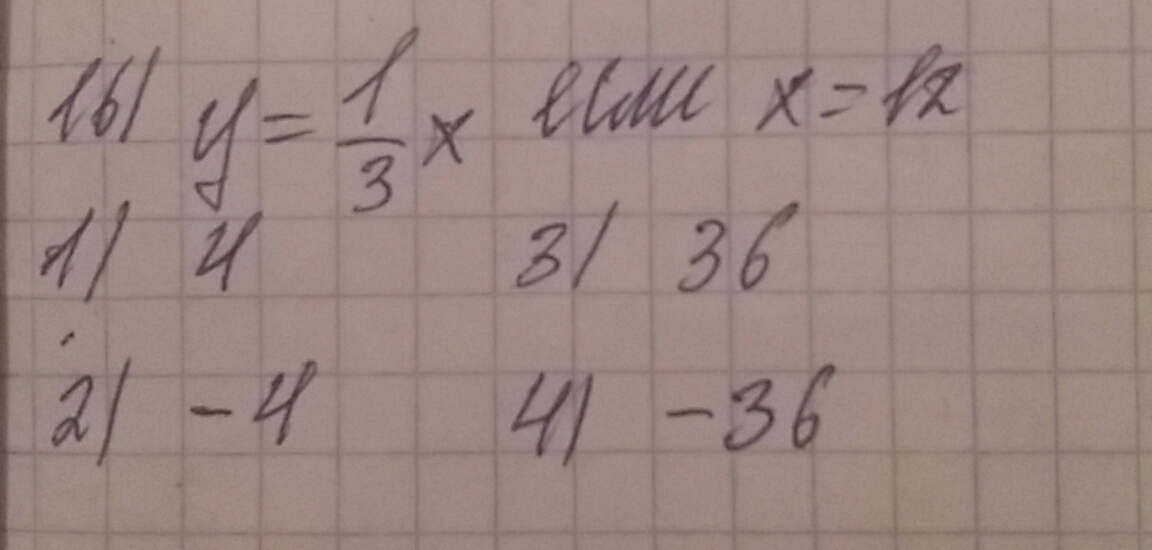 16) y = 1/3 x если x = 12
1) 4 3) 36
2) - 4 4) - 36